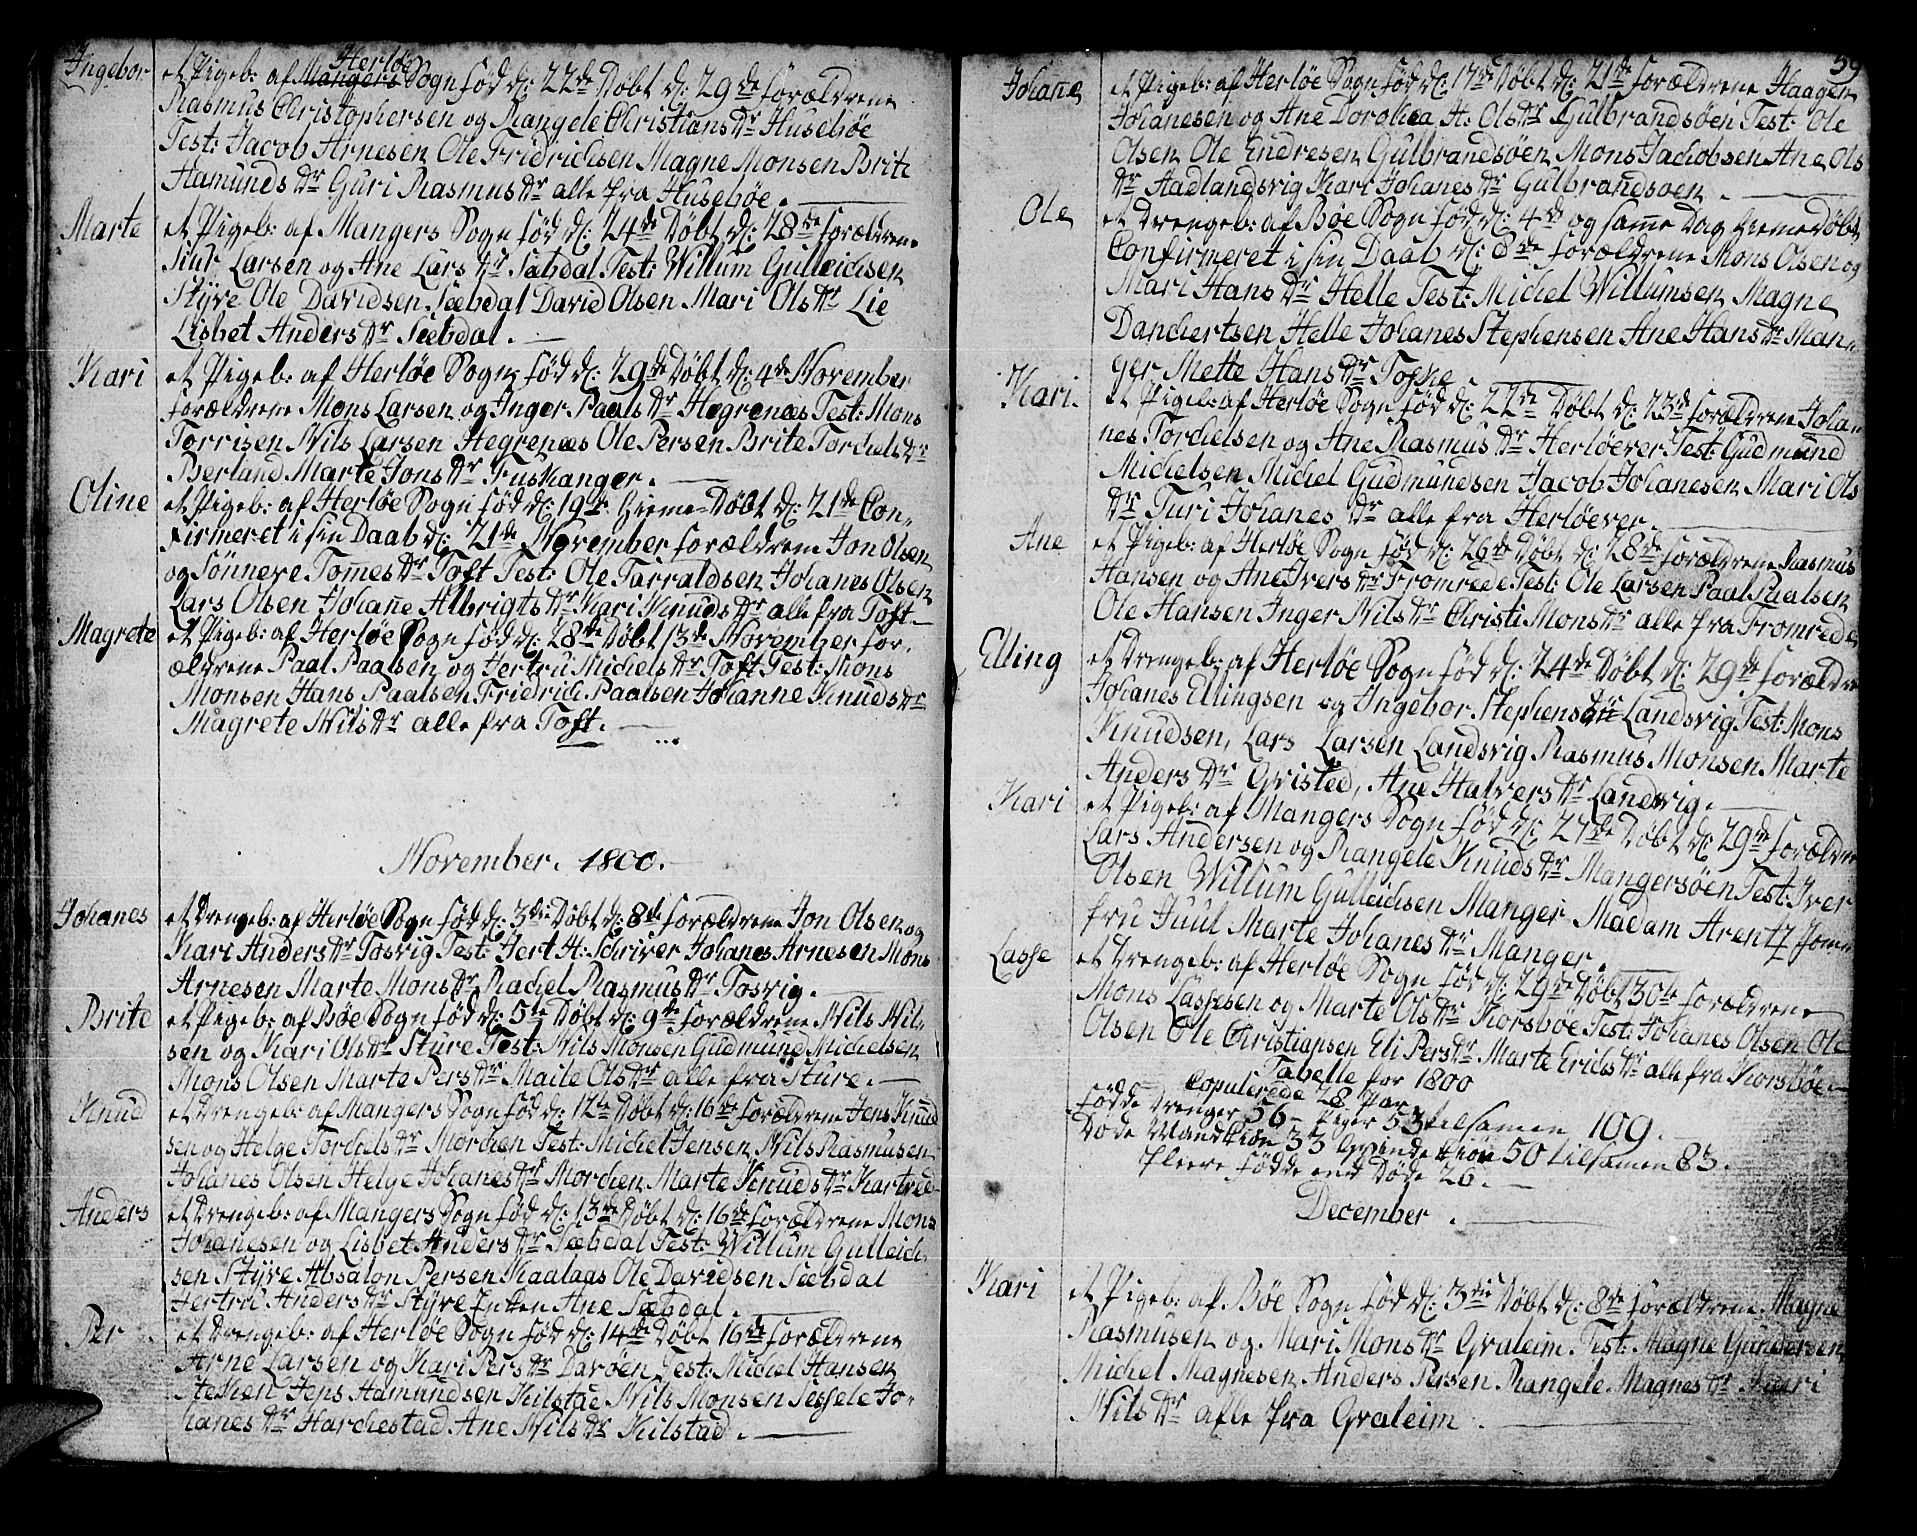 Ingebor et Pigeb: af Mangers Herløe Sogn fød d: 22de Døbt d: 29de forældrene
Rasmus Christophersen og Rangele Christians Dr Husebøe
Test: Jacob Arnesen Ole Fridrichsen Magne Monsen Brite
Hamunds Dr Guri Rasmus Dr alle fra Husebøe.
Marte et Pigeb: af Mangers Sogn fød d: 24de Døbt d: 28de forældrene
Siur Larsen og Ane Lars Dr Sæbdal Test: Willum Gulleichsen
Styve Ole Davidsen Sæbdal David Olsen Mari Ols Dr Lie
Lisbet Anders Dr Sæbdal.
Kari et Pigeb: af Herløe Sogn fød d: 29de Døbt d: 4de November
forældrene Mons Larsen og Inger Paals Dr Hegrenæs Test: Mons
Torrisen Nils Larsen Hegrenæs Ole Persen Brite Torchels Dr
Berland Marte Jons Dr Fuskanger.
Oline et Pigeb: af Herløe Sogn fød d: 19de Hieme-Døbt d: 21de Con-
firmeret i sin Daab d: 21de November forældrene Jon Olsen
og Sønneve Tomes Dr Toft Test: Ole Tarraldsen Johanes Olsen
Lars Olsen Johane Albrigts Dr Kari Knuds Dr alle fra Toft
Magrete et Pigeb: af Herløe Sogn fød d: 28de Døbt 13de November for-
ældrene Paal Paalsen og Hertru Michels Dr Toft Test: Mons
Monsen Hans Paalsen Fridrich Paalsen Johanne Knuds Dr
Magrete Nils Dr alle fra Toft.
November. 1800.
Johanes et Drengeb: af Herløe Sogn fød d: 3die Døbt d: 8de forældrene Jon Olsen og
Kari Anders Dr Tosvig Test: Hert H: Schriver Johanes Arnesen Mons
Arnesen Marte Mons Dr Rachel Rasmus Dr Tosvig.
Brite et Pigeb: af Bøe Sogn fød d: 5te Døbt d: 9de forældrene Nils Nil-
sen og Kari Ols Dr Sture Test: Nils Monsen Gudmund Michelsen
Mons Olsen Marte Pers Dr Maile Ols Dr alle fra Sture.
Knud et Drengeb: af Mangers Sogn fød d: 12te Døbt d: 16de forældrene Jens Knud
sen og Helge Torchels Dr Morchen Test: Michel Jensen Nils Rasmusen
Johanes Olsen Helge Johanes Dr Morchen Marte Knuds Dr Kartved
Anders et Drengeb: af Mangers Sogn fød d: 13de Døbt d: 16de forældrene Mons
Johanesen og Lisbet Anders Dr Sæbdal Test: Willum Gulleich-
sen Styve Absalon Persen Kaalaas Ole Davidsen Sæbdal
Hertru Anders Dr Styve Enken Ane Sæbdal.
Per et Drengeb: af Herløe Sogn fød d: 14de Døbt 16de forældrene
Arne Larsen og Kari Pers Dr Darøen Test: Michel Hansen
Jens Hamundsen Kilstad Nils Monsen Sessele Jo-
hanes Dr Harchestad Ane Nils Dr Kilstad.
59
Johane et Pigeb: af Herløe Sogn fød d: 17de Døbt d: 21de forældrene Haagen
Johanesen og Ane Dorothea H: Ols Dr Gulbrandsøen Test: Ole
Olsen Ole Endresen Gulbrandsøen Mons Jachobsen Ane Ols
Dr Aadlandsvig Kari Johanes Dr Gulbrandsøen.
Ole et Drengeb: af Bøe Sogn fød d: 4de og same Dag Hieme Døbt
Confirmeret i sin Daab d: 8de forældrene Mons Olsen og
Mari Hans Dr Helle Test: Michel Willumsen Magne
Danchertsen Helle Johanes Stephensen Ane Hans Dr Man-
ger Mette Hans Dr Toske.
Kari et Pigeb: af Herløe Sogn fød d: 22de Døbt d: 23de forældrene Joha-
nes Torchelsen og Ane Rasmus Dr Herløever Test: Gudmund
Michelsen Michel Gudmundsen Jacob Johanesen Mari Ols
Dr Turi Johanes Dr alle fra Herløever.
Ane et Pigeb: af Herløe Sogn fød d: 26de Døbt d: 28de forældrene Rasmus
Hansen og Ane Ivers Dr Fromrede Test: Ole Larsen Paal Paalsen
Ole Hansen Inger Nils Dr Christi Mons Dr alle fra Fromrede
Elling et Drengeb: af Herløe Sogn fød d: 24de Døbt d: 29de forældre
Johanes Ellingsen og Ingebor Stephens Dr Landsvig Test: Mons
Knudsen, Lars Larsen Landsvig Rasmus Monsen Marte
Anders Dr Qvisted, Ane Halvers Dr Landsvig.
Kari et Pigeb: af Mangers Sogn fød d: 27de Døbt d: 29de forældre
Lars Andersen og Rangele Knuds Dr Mangersøen Test: Iver
Olsen Willum Gulleichsen Manger Madam Arentz Jom-
fru Juul Marte Johanes Dr Manger.
Lasse et Drengeb: af Herløe Sogn fød d: 29de Døbt 30te forældrene
Mons Lassesen og Marte Ols Dr Korsbøe Test: Johanes Olsen Ole
Olsen Ole Christiansen Eli Pers Dr Marte Erichs Dr alle fra Korsbøe
Tabelle for 1800
Copulerede 28 Par
Fødde Drenger 56 Piger 53 tilsamen 109.
Døde Mandkiøn 33 Qvindekiøn 50 tilsamen 83.
Fleere fødde end Døde 26.
December.
Kari et Pigeb: af Bøe Sogn fød d: 3die Døbt d: 8de forældrene Magne
Rasmusen og Mari Mons Dr Qvaleim Test: Magne Gundersen
Michel Magnesen Anders Persen Rangele Magnes Dr Kari
Nils Dr alle fra Qvaleim.